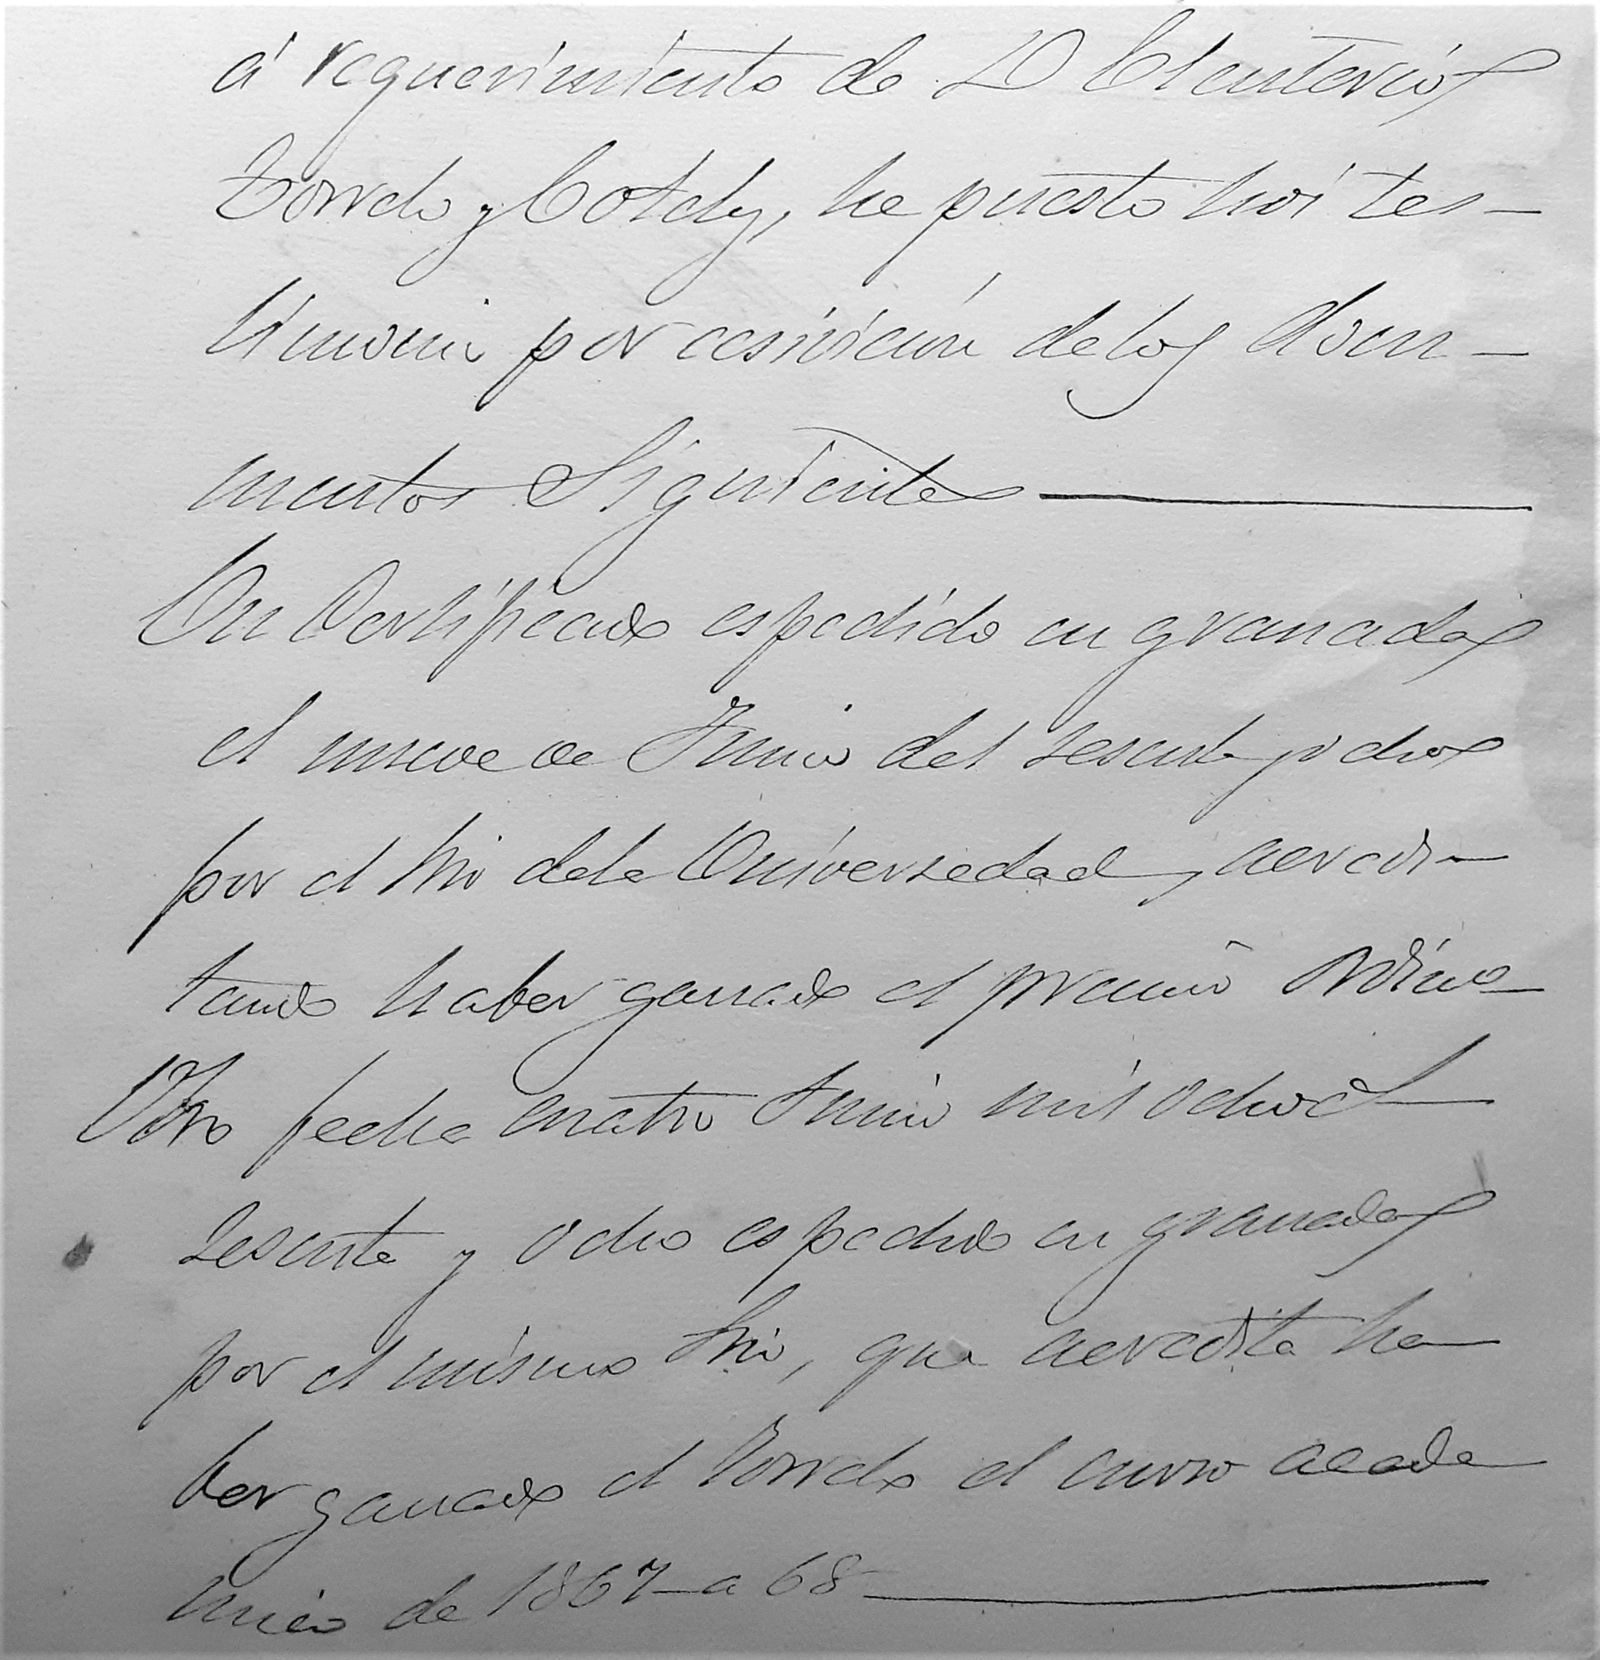 á requerimiento de D Eleuterio
Torrelo y Cotely, he puesto hoi tes-
timonio por ecsivición de los docu-
mentos Siguientes
Un Certificado espedido en granada
el nueve de Junio del sesenta y ocho
por el Srio de la Universedad, acredi-
tando haber ganado el premio Ordino
Otro fecha cuatro Junio mil ochoct
sesenta y ocho espedido en granada
por el mismo Srio, que acredita ha
ber ganado el Torrelo el curso acade
mico de 1867 a 68